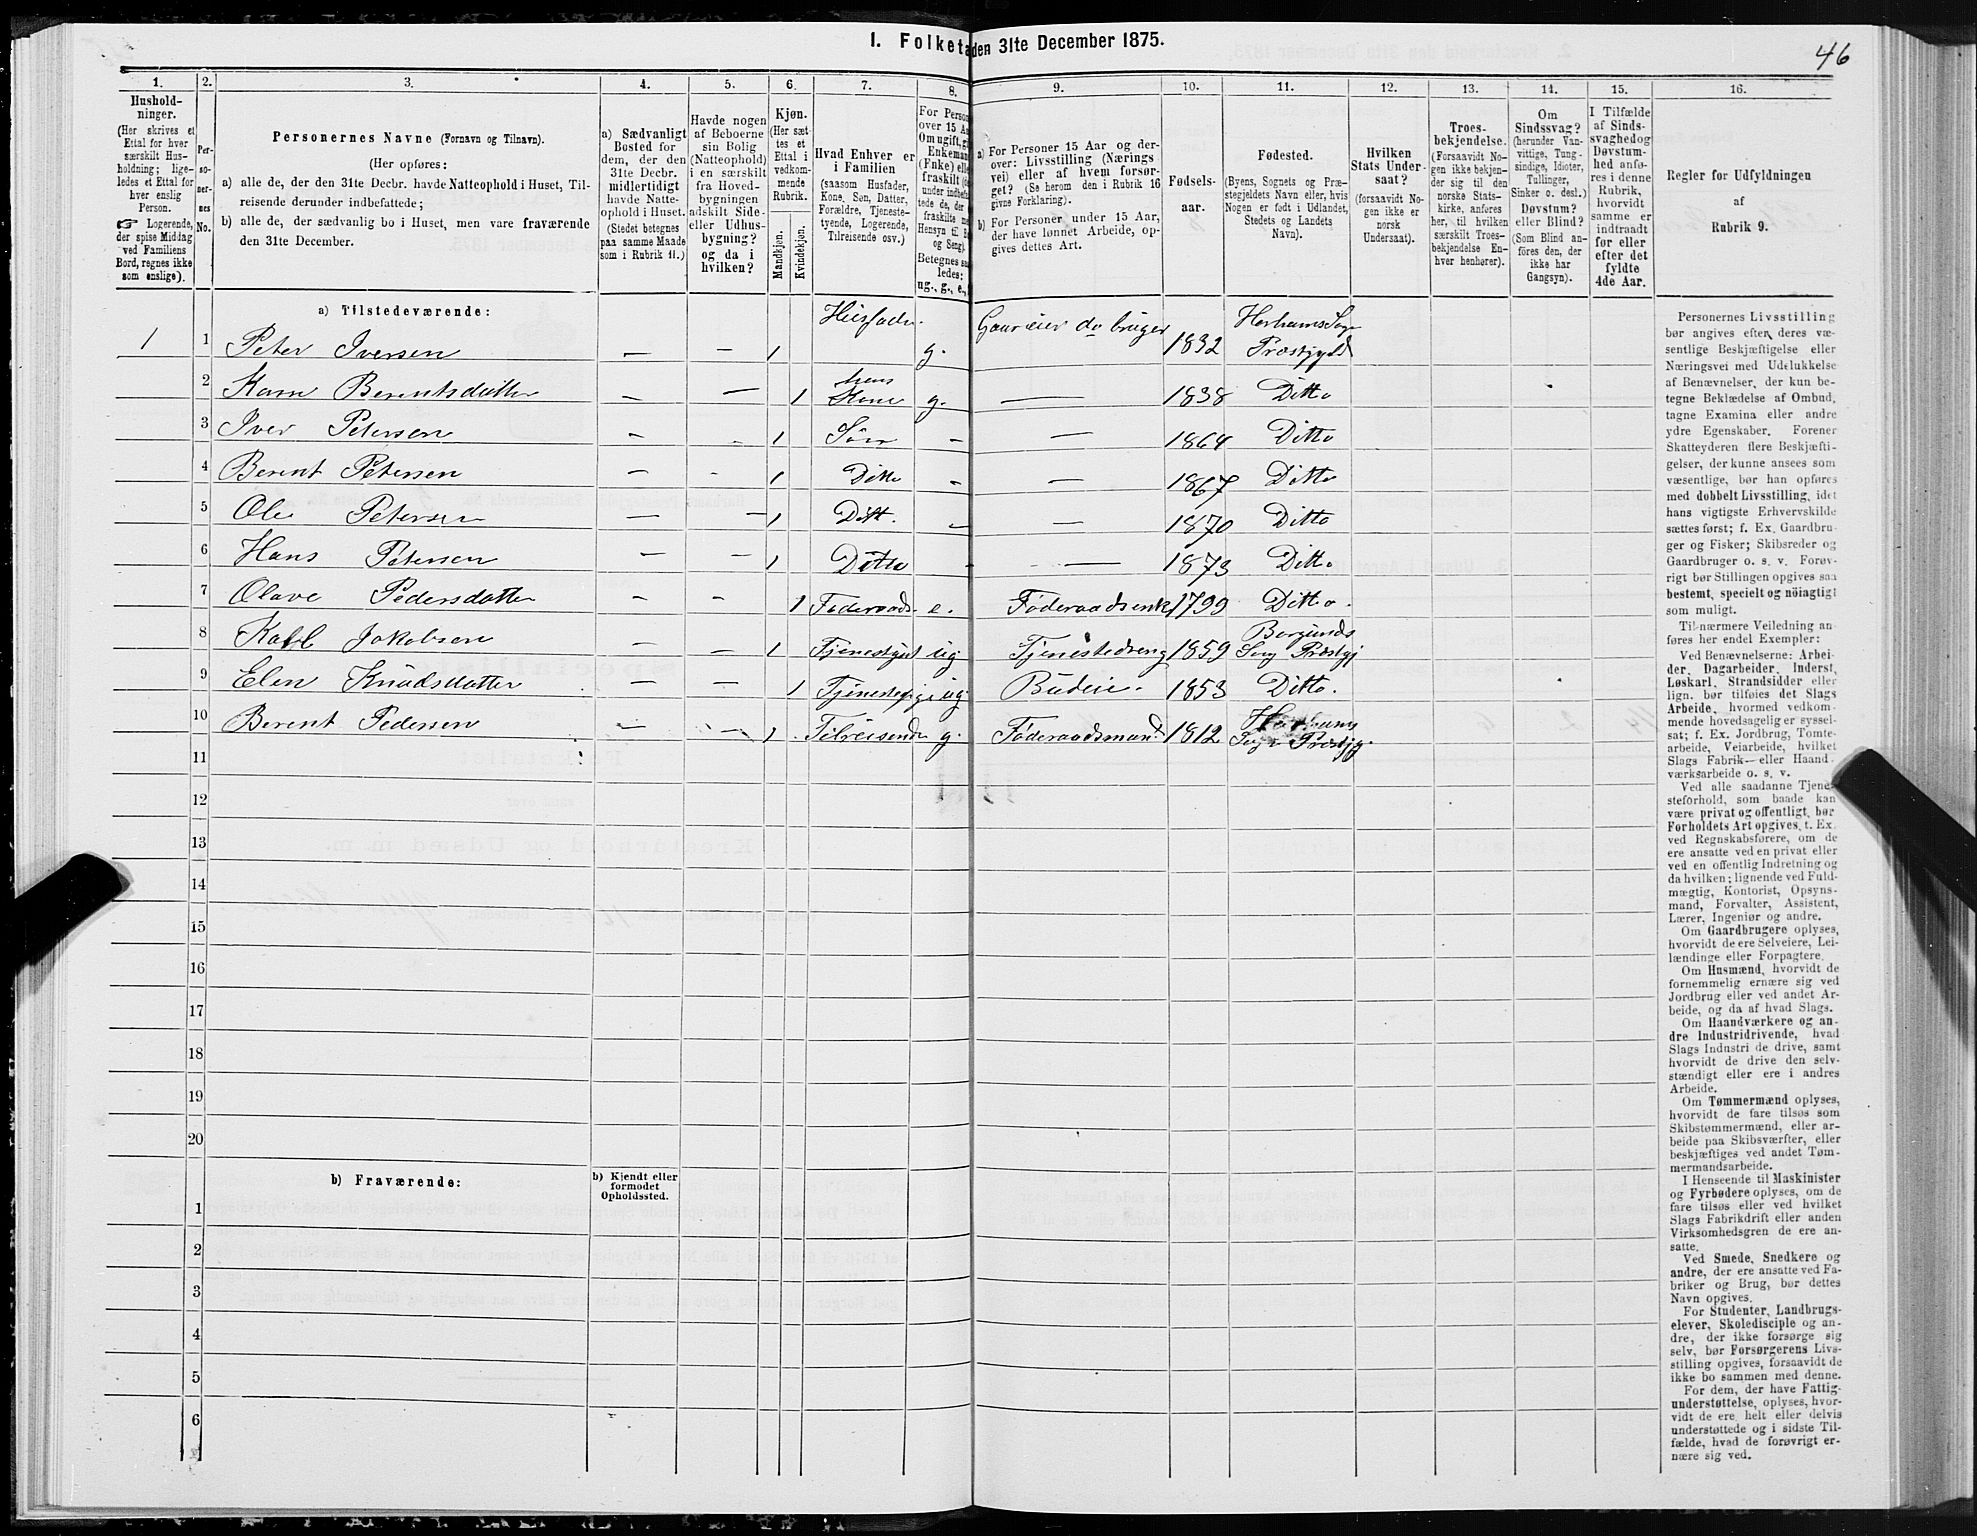 I. Folketæ
den 31te December 1875.
46
1.
2.
3.
4.
5.
6.
7.
8.
9.
10.
11.
12.
13.
14.
15.
16.
Hushold-
ninger.
(Her skrives et
Ettal for hver
særskilt Hus-
holdning; lige-
ledes et Ettal for
hver enslig
Person.
☞ Logerende,
der spise Middag
ved Familiens
Bord, regnes ikke
som enslige).
Per-
so-
ner-
nes
No.
Personernes Navne (Fornavn og Tilnavn).
(Her opføres:
a) alle de, der den 31te Decbr. havde Natteophold i Huset, Til-
reisende derunder indbefattede;
b) alle de, der sædvanlig bo i Huset, men vare fraværende
den 31te December.
a) Sædvanligt
Bosted for
dem, der den
31te Decbr.
midlertidigt
havde Natte-
ophold i Huset.
(Stedet betegnes
paa samme Maade
som i Rubrik 11.)
Havde nogen
af Beboerne
sin Bolig
(Natteophold)
i en særskilt
fra Hoved-
bygningen
adskilt Side-
eller Udhus-
bygning?
og da i
hvilken?
Kjøn.
(Her sæt-
tes et
Ettal i
vedkom-
mende
Rubrik.
Mandkjøn.
Kvindekjøn.
Hvad Enhver er
i Familien
(saasom Husfader,
Kone, Søn, Datter,
Forældre, Tjeneste-
tyende, Logerende,
Tilreisende osv.)
For Person
over 15 Aa
Om ugift, g
Enkeman
(Enke) elle
fraskilt
under indbe
tede de, der
fraskilte m
Hensyn til B
og Seng).
Betegnes saa
ledes:
ug., g., e.,
a) For Personer 15 Aar og der-
over: Livsstilling (Nærings
vei) eller af hvem forsør-
get? (Se herom den i Rubrik 16
givne Forklaring).
b) For Personer under 15 Aar,
der have lønnet Arbeide, op-
gives dettes Art.
Fødsels-
aar.
Fødested.
(Byens, Sognets og Præ-
stegjeldets Navn eller, hvis
Nogen er født i Udlandet,
Stedets og Landets
Navn).
Hvilken
Stats Under-
saat?
(forsaavidt No-
gen ikke er
norsk
Undersaat).
Troes-
bekjendelse.
(Forsaavidt No-
gen ikke bekjen-
der sig til den
norske Stats-
kirke, anføres
her, til hvilken
særskilt Troes-
bekjendelse En-
hver henhører).
Om
Sindssvag?
(herunder Van-
vittige, Tung-
sindige, Idioter,
Tullinger,
Sinker o. desl.)
Døvstum?
eller Blind?
(Som Blind an-
føres den, der
ikke har
Gangsyn).
I Tilfælde
af Sinds-
svaghed og
Døvstum-
hed anfø-
res i denne
Rubrik,
hvorvidt
samme er
indtraadt
før eller
efter det
fyldte
4de Aar.
Regler for Udfyldningen
af
Rubrik 9.
a) Tilstedeværende:
1 1 Peter Iversen — — 1 Husfader. g. Gaardeier do bruger 1832 Harhams Sogn
Præstgjeld
2 Karn Berentsdatter — — 1 hans
Kone g. — 1838 Ditto
3 Iver Petersen — — 1 Søn — — 1864 Ditto
4 Berent Petersen — - 1 Ditto — — 1867 Ditto
5 Ole Petersen — — 1 Ditt. — — 1870 Ditto
6 Hans Petersen — — 1 Ditto - — 1873 Ditto
7 Olave Pedersdatter — — 1 Føderaads- e. Føderaadsenk 1799 Ditto.
8 Karl Jakobsen — — 1 Tjenestgut ug Tjenestedreng 1859 Borgunds
Sogn Præstgj
9 Elen Knudsdatter — — 1 Tjenestepige ug. Budeie. 1853 Ditto.
10 Berent Pedersen — — 1 Tilreisende g. Føderaadsmand 1812 Harhams
Sogn Præstgj.
11
12
13
14
15
16
17
18
19
20
b) Fraværende:
b) Kjendt eller
formodet
Opholdssted.
1
2
3
4
5
6
Personernes Livsstilling
bør angives efter deres væ-
sentlige Beskjæftigelse eller
Næringsvei med Udelukkelse
af Benævnelser, der kun be-
tegne Beklædelse af Ombud,
tagne Examina eller andre
ydre Egenskaber. Forener
Skatteyderen flere Beskjæfti-
gelser, der kunne ansees som
væsentlige, bør han opføres
med dobbelt Livsstilling, idet
hans vigtigste Erhvervskilde
sættes først; f. Ex. Gaardbru-
ger og Fisker; Skibsreder og
Gaardbruger o. s. v. Forøv-
rigt bør Stillingen opgives saa
bestemt, specielt og nøiagtigt
som muligt.
Til nærmere Veiledning an-
føres her endel Exempler:
Ved Benævnelserne: Arbei-
der, Dagarbeider, Inderst,
Løskarl, Strandsidder eller
lign. bør tilføies det Slags
Arbeide, hvormed vedkom-
mende hovedsagelig er syssel-
sat; f. Ex. Jordbrug, Tomte-
arbeide, Veiarbeide, hvilket
Slags Fabrik- eller Haand-
værksarbeide o. s. v.
Ved alle saadanne Tjene-
steforhold, som baade kan
være privat og offentligt, bør
Forholdets Art opgives, t. Ex.
ved Regnskabsførere, om de
ere ansatte ved en privat eller
ved en offentlig Indretning og
da hvilken; lignende ved Fuld-
mægtig, Kontorist, Opsyns-
mand, Forvalter, Assistent,
Lærer, Ingeniør og andre.
Om Gaardbrugere oplyses,
hvorvidt de ere Selveiere, Lei-
lændinge eller Forpagtere.
Om Husmænd, hvorvidt de
fornemmelig ernære sig ved
Jordbrug eller ved andet Ar-
beide, og da af hvad Slags.
Om Haandværkere og an-
dre Industridrivende, hvad
Slags Industri de drive, samt
hvorvidt de drive den selv-
stændigt eller ere i andres
Arbeide.
Om Tømmermænd oplyses,
hvorvidt de fare tilsøs som
Skibstømmermænd, eller ar-
beide paa Skibsværfter, eller
beskjæftiges ved andet Tøm-
mermandsarbeide.
I Henseende til Maskinister
og Fyrbødere oplyses, om de
fare tilsøs eller ved hvilket
Slags Fabrikdrift eller anden
Virksomhedsgren de ere an-
satte.
Ved Smede, Snedkere og
andre, der ere ansatte ved Fa-
briker og Brug, bør dettes
Navn opgives.
For Studenter, Landbrugs-
elever, Skoledisciple og an-
dre, der ikke forsørge sig
selv, bør Forsørgerens Livs-
stilling opgives, forsaavidt de
ikke bo sammen med denne.
For dem, der have Fattig-
understøttelse, oplyses, hvor-
vidt de ere helt eller delvis
understøttede og i sidste Til-
fælde, hvad de forøvrigt er-
nære sig ved.